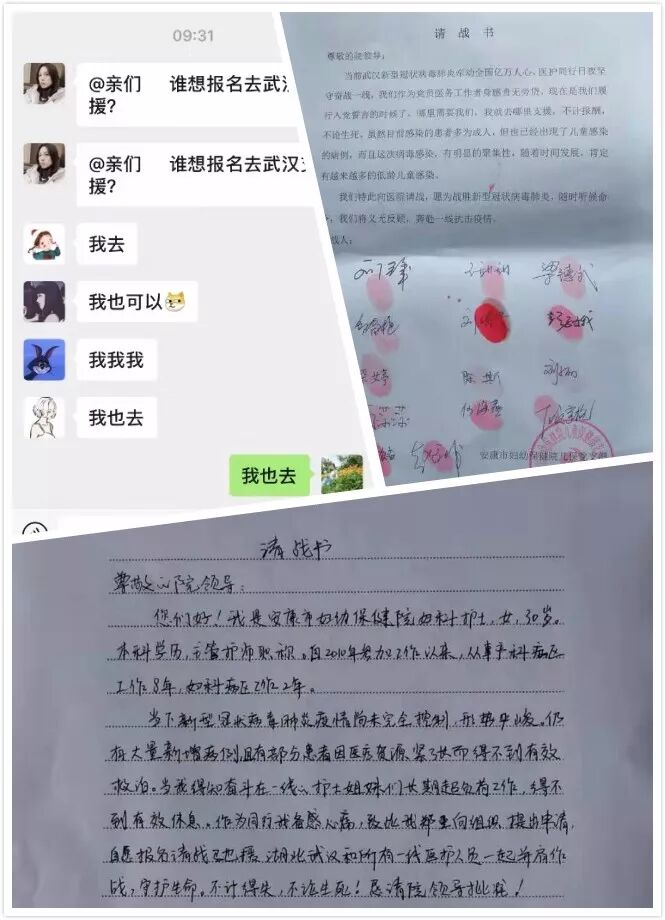 09:31
@亲们 谁想报名去武汉
援?
@亲们 谁想报名去武汉支
援?
我去
我也可以
我我我
我也去
我也去
请 战 书
尊敬的院领导：
当前武汉新型冠状病毒肺炎牵动全国亿万人心，医护同行日夜坚
守奋战一线，我们作为党员医务工作者身感责无旁贷，现在是我们履
行入党誓言的时候了，哪里需要我们，我就去哪里支援，不计报酬，
不论生死。虽然目前感染的患者多为成人，但也已经出现了儿童感染
的病例，而且这次病毒感染，有明显的聚集性，随着时间发展，肯定
有越来越多的低龄儿童感染。
我们特此向医院请战，愿为战胜新型冠状病毒肺炎，随时听候命
令，我们将义无反顾，奔赴一线抗击疫情。
战人：
梁德武
陈斯
安康市妇幼保健院儿保党支部
请战书
尊敬的院领导：
您们好！我是安康市妇幼保健院妇科护士，女，30岁。
本科学历，主管护师职称。自2010年参加工作以来，从事产科病区
工作8年，妇科病区工作2年。
当下新型冠状病毒肺炎疫情尚未完全控制，形势严峻。仍
有大量新增病例且有部分患者因医疗资源紧缺而得不到有效
救治。当我得知奋斗在一线的护士姐妹们长期超负荷工作，得不
到有效休息。作为同行我备感心痛，故此我郑重向组织提出申请，
自愿报名请战支援湖北武汉和所有一线医护人员一起并肩作
战，守护生命。不计得失，不论生死！恳请院领导批准！